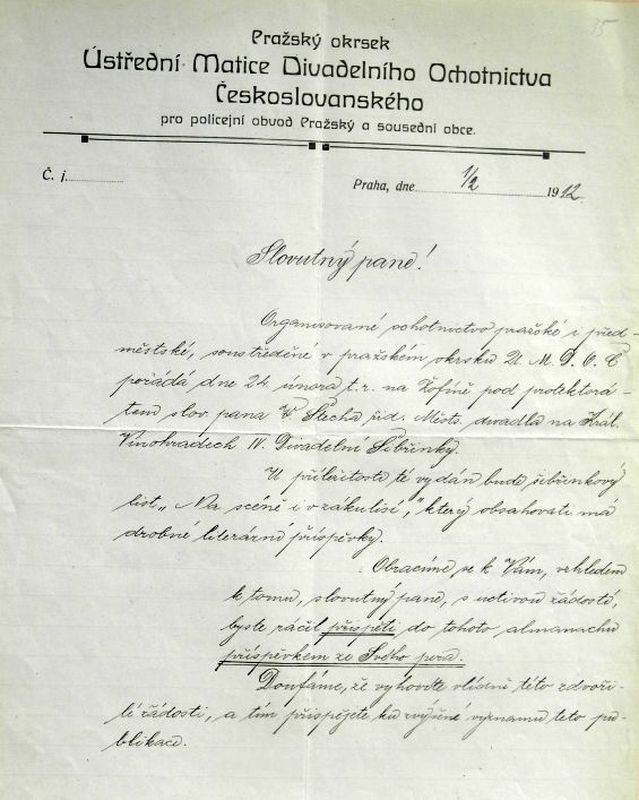 35
Pražský okrsek
Ústřední Matice Divadelního Ochotnictva
Českoslovanského
pro policejní obvod Pražský a sousední obce.
Č. j.
Praha, dne 1/2 1912
Slovutný pane!
Organisované ochotnictvo pražské i před-
městské, soustředěné v pražském okrsku Ú. M. D. O. Č
pořádá dne 24. února t. r. na Žofíně pod protektorá-
tem slov. pana V Štecha řed. Městs. divadla na Král.
Vinohradech IV. Divadelní Šibřinky.
U příležitosti té vydán bude šibřinkový
list „Na scéně i v zákulisí," který obsahovati má
drobné literární příspěvky.
Obracíme se k Vám, vzhledem
k tomu, slovutný pane, s uctivou žádostí,
byste ráčil přispěti do tohoto almanachu
příspěvkem ze Svého pera.
Doufáme, že vyhovíte vlídně této zdvoři-
lé žádosti, a tím přispějete ku zvýšení významu této pu-
blikace.